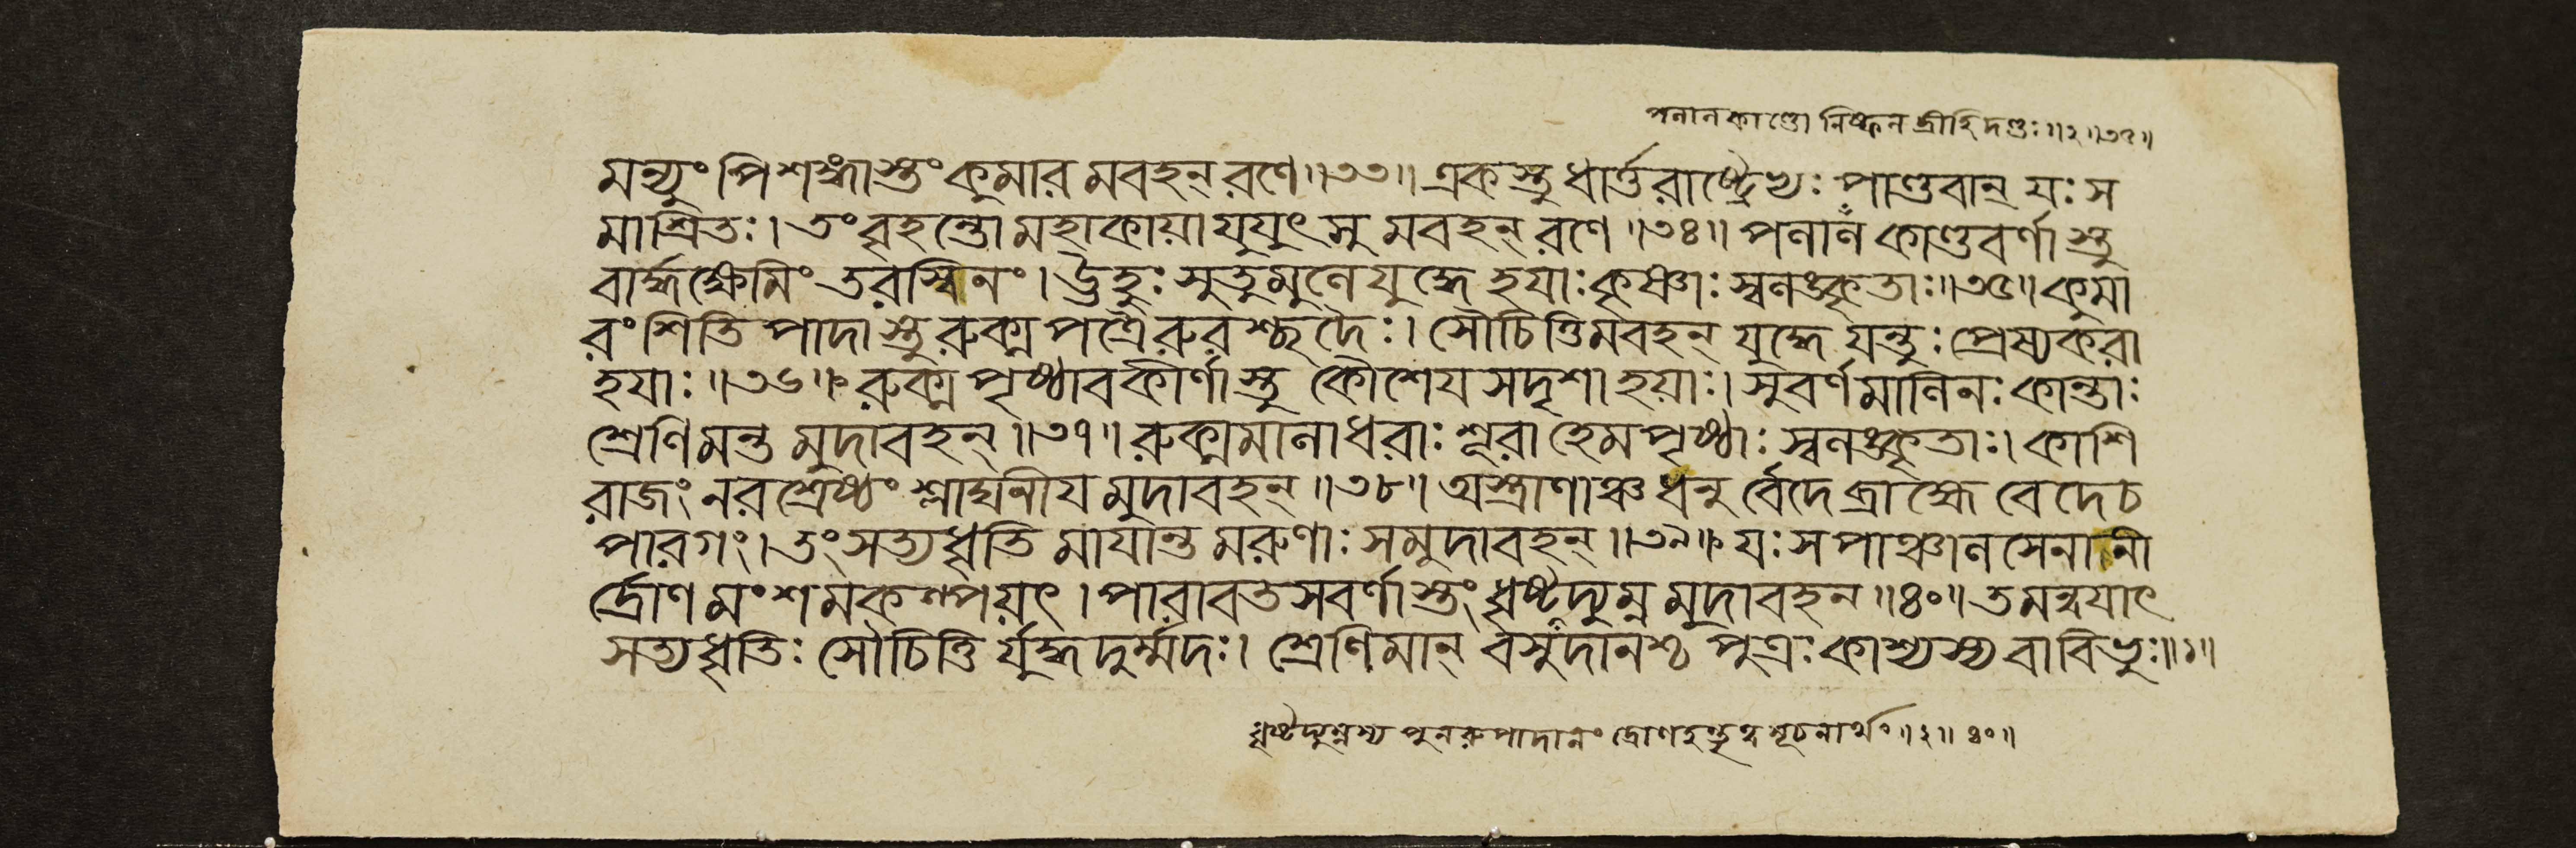 পলালকাণ্ডো নিষ্ফল ব্রীহিদণ্ডঃ॥২॥৩৫॥
মন্যুং পিশঙ্গাস্তং কুমারমবহন্ রণে॥৩৩॥ একস্তু ধার্ত্তরাষ্ট্রেভ্যঃ পাণ্ডবান্ যঃ স
মাশ্রিতঃ। তং বৃহন্তো মহাকায়া যুযুৎসুমবহন্ রণে॥৩৪॥ পলালকাণ্ডবর্ণাস্তু
বার্দ্ধক্ষেমিং তরস্বিনং। ঊহুঃ সুতুমুলে যুদ্ধে হযাঃ কৃষ্ণাঃ স্বলঙ্কৃতাঃ॥৩৫॥ কুমা
রং শিতিপাদাস্তু রুক্মপত্রৈরুরশ্ছদৈঃ। সৌচিত্তিমবহন্ যুদ্ধে যন্তুঃ প্রেষ্যকরা
হযাঃ॥৩৬॥ রুক্মপৃষ্ঠাবকীর্ণাস্তু কৌশেযসদৃশা হয়াঃ। সুবর্ণমালিনঃ কান্তাঃ
শ্রেণিমন্তমুদাবহন্॥৩৭॥ রুক্মমালাধরাঃ শূরা হেমপৃষ্ঠাঃ স্বলঙ্কৃতাঃ। কাশি
রাজং নরশ্রেষ্ঠং শ্লাঘনীযমুদাবহন্॥৩৮॥ অস্ত্রাণাঞ্চ ধনুর্বেদে ব্রাহ্মে বেদে চ
পারগং। তং সত্যধৃতিমাযান্তমরুণাঃ সমুদাবহন্॥৩৯॥ যঃ স পাঞ্চালসেনানী
র্দ্রোণমংশমকল্পয়ৎ। পারাবতসবর্ণাস্তং ধৃষ্টদ্যুম্নমুদাবহন॥৪০॥ তমন্বযাৎ
সত্যধৃতিঃ সৌচিত্তির্যুদ্ধদুর্ম্মদঃ। শ্রেণিমান্ বসুদানশ্চ পুত্রঃ কাশ্যস্য বাবিভুঃ॥১॥
ধৃষ্টদ্যুম্নস্য পুনরুপাদানং দ্রোণহন্তৃত্ব সূচনার্থং॥২॥৪০॥